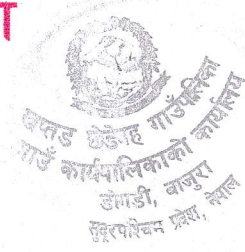 खप्तड छेडेदह गाउँपालिका
गाउँ कार्यपालिकाको कार्यालय
डोगडी, बाजुरा
सुदूरपश्चिम प्रदेश, नेपाल